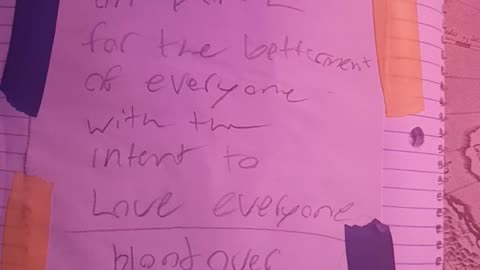 for the betterment
of everyone
with the
intent to
Love everyone
blood over